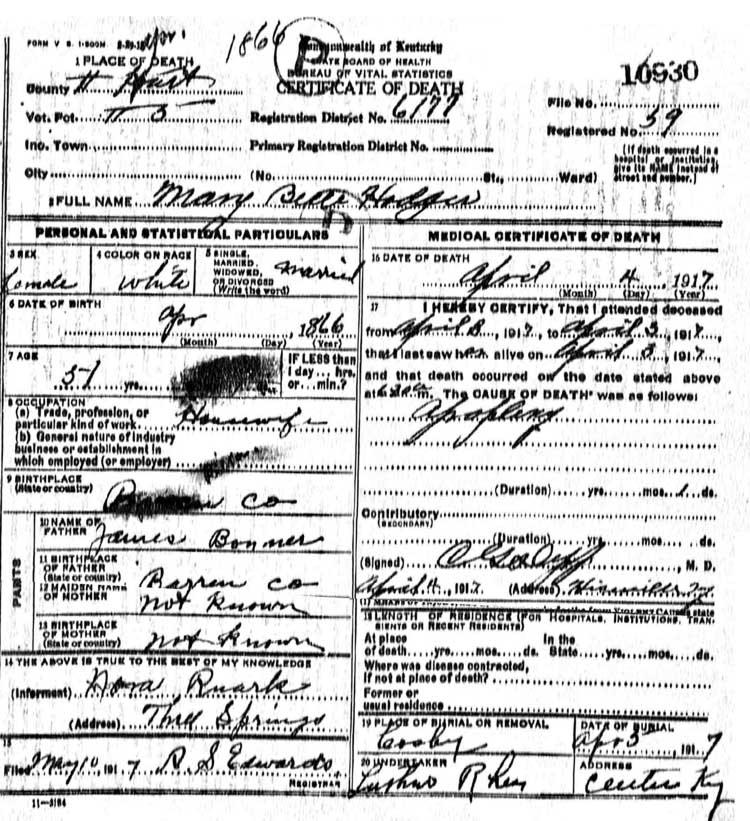 1866
FORM V S. 1-500M
Commonwealth of Kentucky
STATE BOARD OF HEALTH
BUREAU OF VITAL STATISTICS
CERTIFICATE OF DEATH
10930
1 PLACE OF DEATH
County Hart
Vot. Pct. 5
Registration District No. 6177
File No.
Registered No. 59
Ino. Town
Primary Registration District No.
(If death occurred in a hospital or institution, give its NAME instead of street and number.)
City (No. St., Ward)
2 FULL NAME Mary Hodges
PERSONAL AND STATISTICAL PARTICULARS
3 SEX
Female
4 COLOR OR RACE
White
5 SINGLE, MARRIED, WIDOWED, OR DIVORCED (Write the word)
Married
6 DATE OF BIRTH
Apr, 1866
(Month) (Day) (Year)
7 AGE
51 yrs.
IF LESS than
1 day... hrs.
or... min.?
8 OCCUPATION
(a) Trade, profession, or
particular kind of work Housewife
(b) General nature of industry
business or establishment in
which employed (or employer)
9 BIRTHPLACE
(State or country)
Barren Co
PARENTS
10 NAME OF FATHER
James Bonner
11 BIRTHPLACE OF FATHER (State or country)
Barren Co
12 MAIDEN NAME OF MOTHER
not Known
13 BIRTHPLACE OF MOTHER (State or country)
not Known
14 THE ABOVE IS TRUE TO THE BEST OF MY KNOWLEDGE
(Informant) Ruark
(Address) Three Springs
15
Filed May 10, 1917 R S Edwards
REGISTRAR
11-3184
MEDICAL CERTIFICATE OF DEATH
16 DATE OF DEATH
April 4 1917
(Month) (Day) (Year)
17 I HEREBY CERTIFY, That I attended deceased
from April 3, 1917, to April 3, 1917,
that I last saw her alive on April 3, 1917,
and that death occurred on the date stated above
at m. The CAUSE OF DEATH was as follows:
Apoplexy
(Duration) yrs. mos. 1 ds.
Contributory
(SECONDARY)
(Duration) yrs. mos. ds.
(Signed) , M. D.
April 4, 1917 (Address)
18 LENGTH OF RESIDENCE (FOR HOSPITALS, INSTITUTIONS, TRANSIENTS OR RECENT RESIDENTS)
At place In the
of death yrs. mos. ds. State yrs. mos. ds.
Where was disease contracted,
If not at place of death?
Former or
usual residence
19 PLACE OF BURIAL OR REMOVAL
Cosby
DATE OF BURIAL
Apr 5, 1917
20 UNDERTAKER
ADDRESS
Center Ky